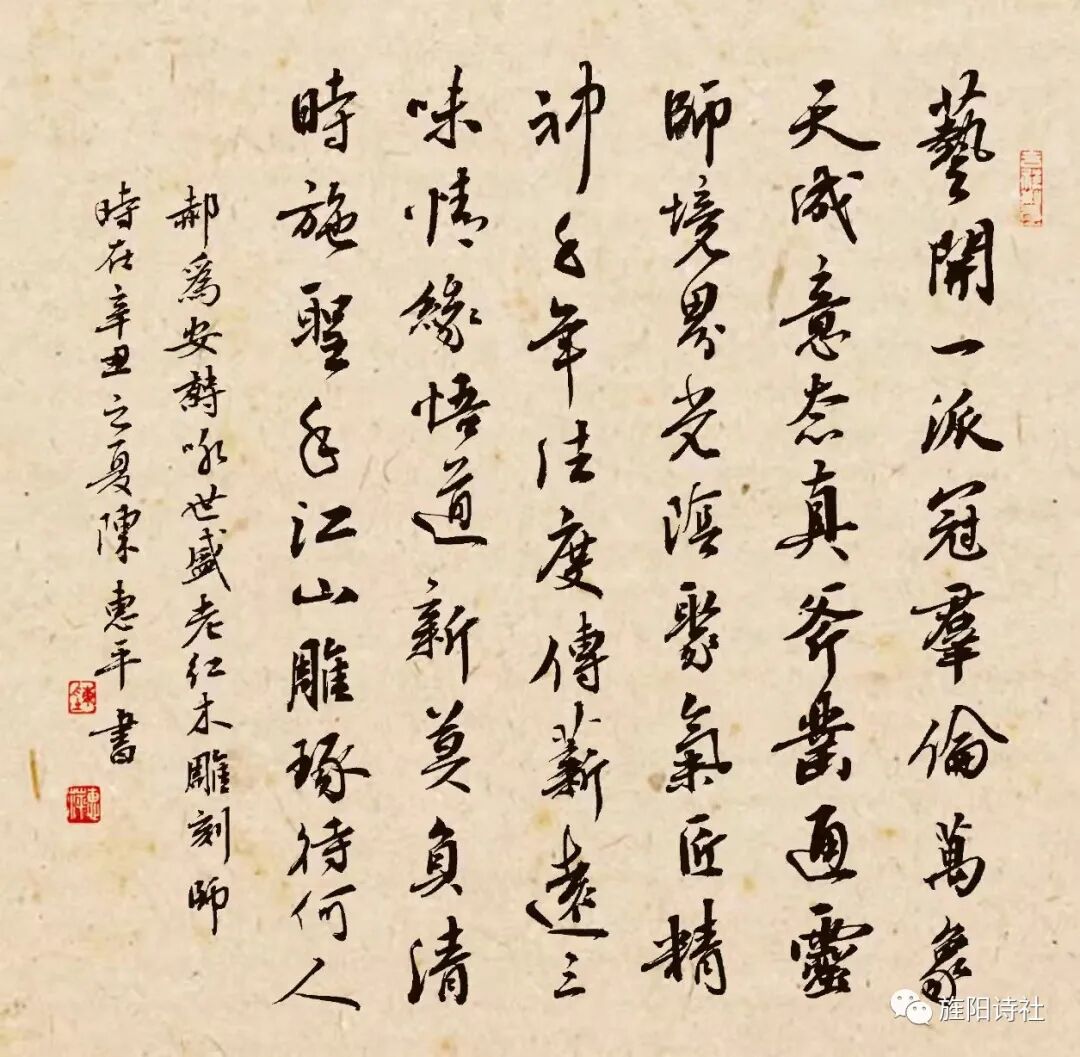 藝開一派冠羣倫萬象
天成意态真斧凿通靈
師境界光陰聚氣匠精
神千年法度傳薪遠三
味情緣悟道新莫負清
時施聖手江山雕琢待何人
郝爲安詩咏世盛老红木雕刻師
時在辛丑之夏陳惠平書
旌阳诗社